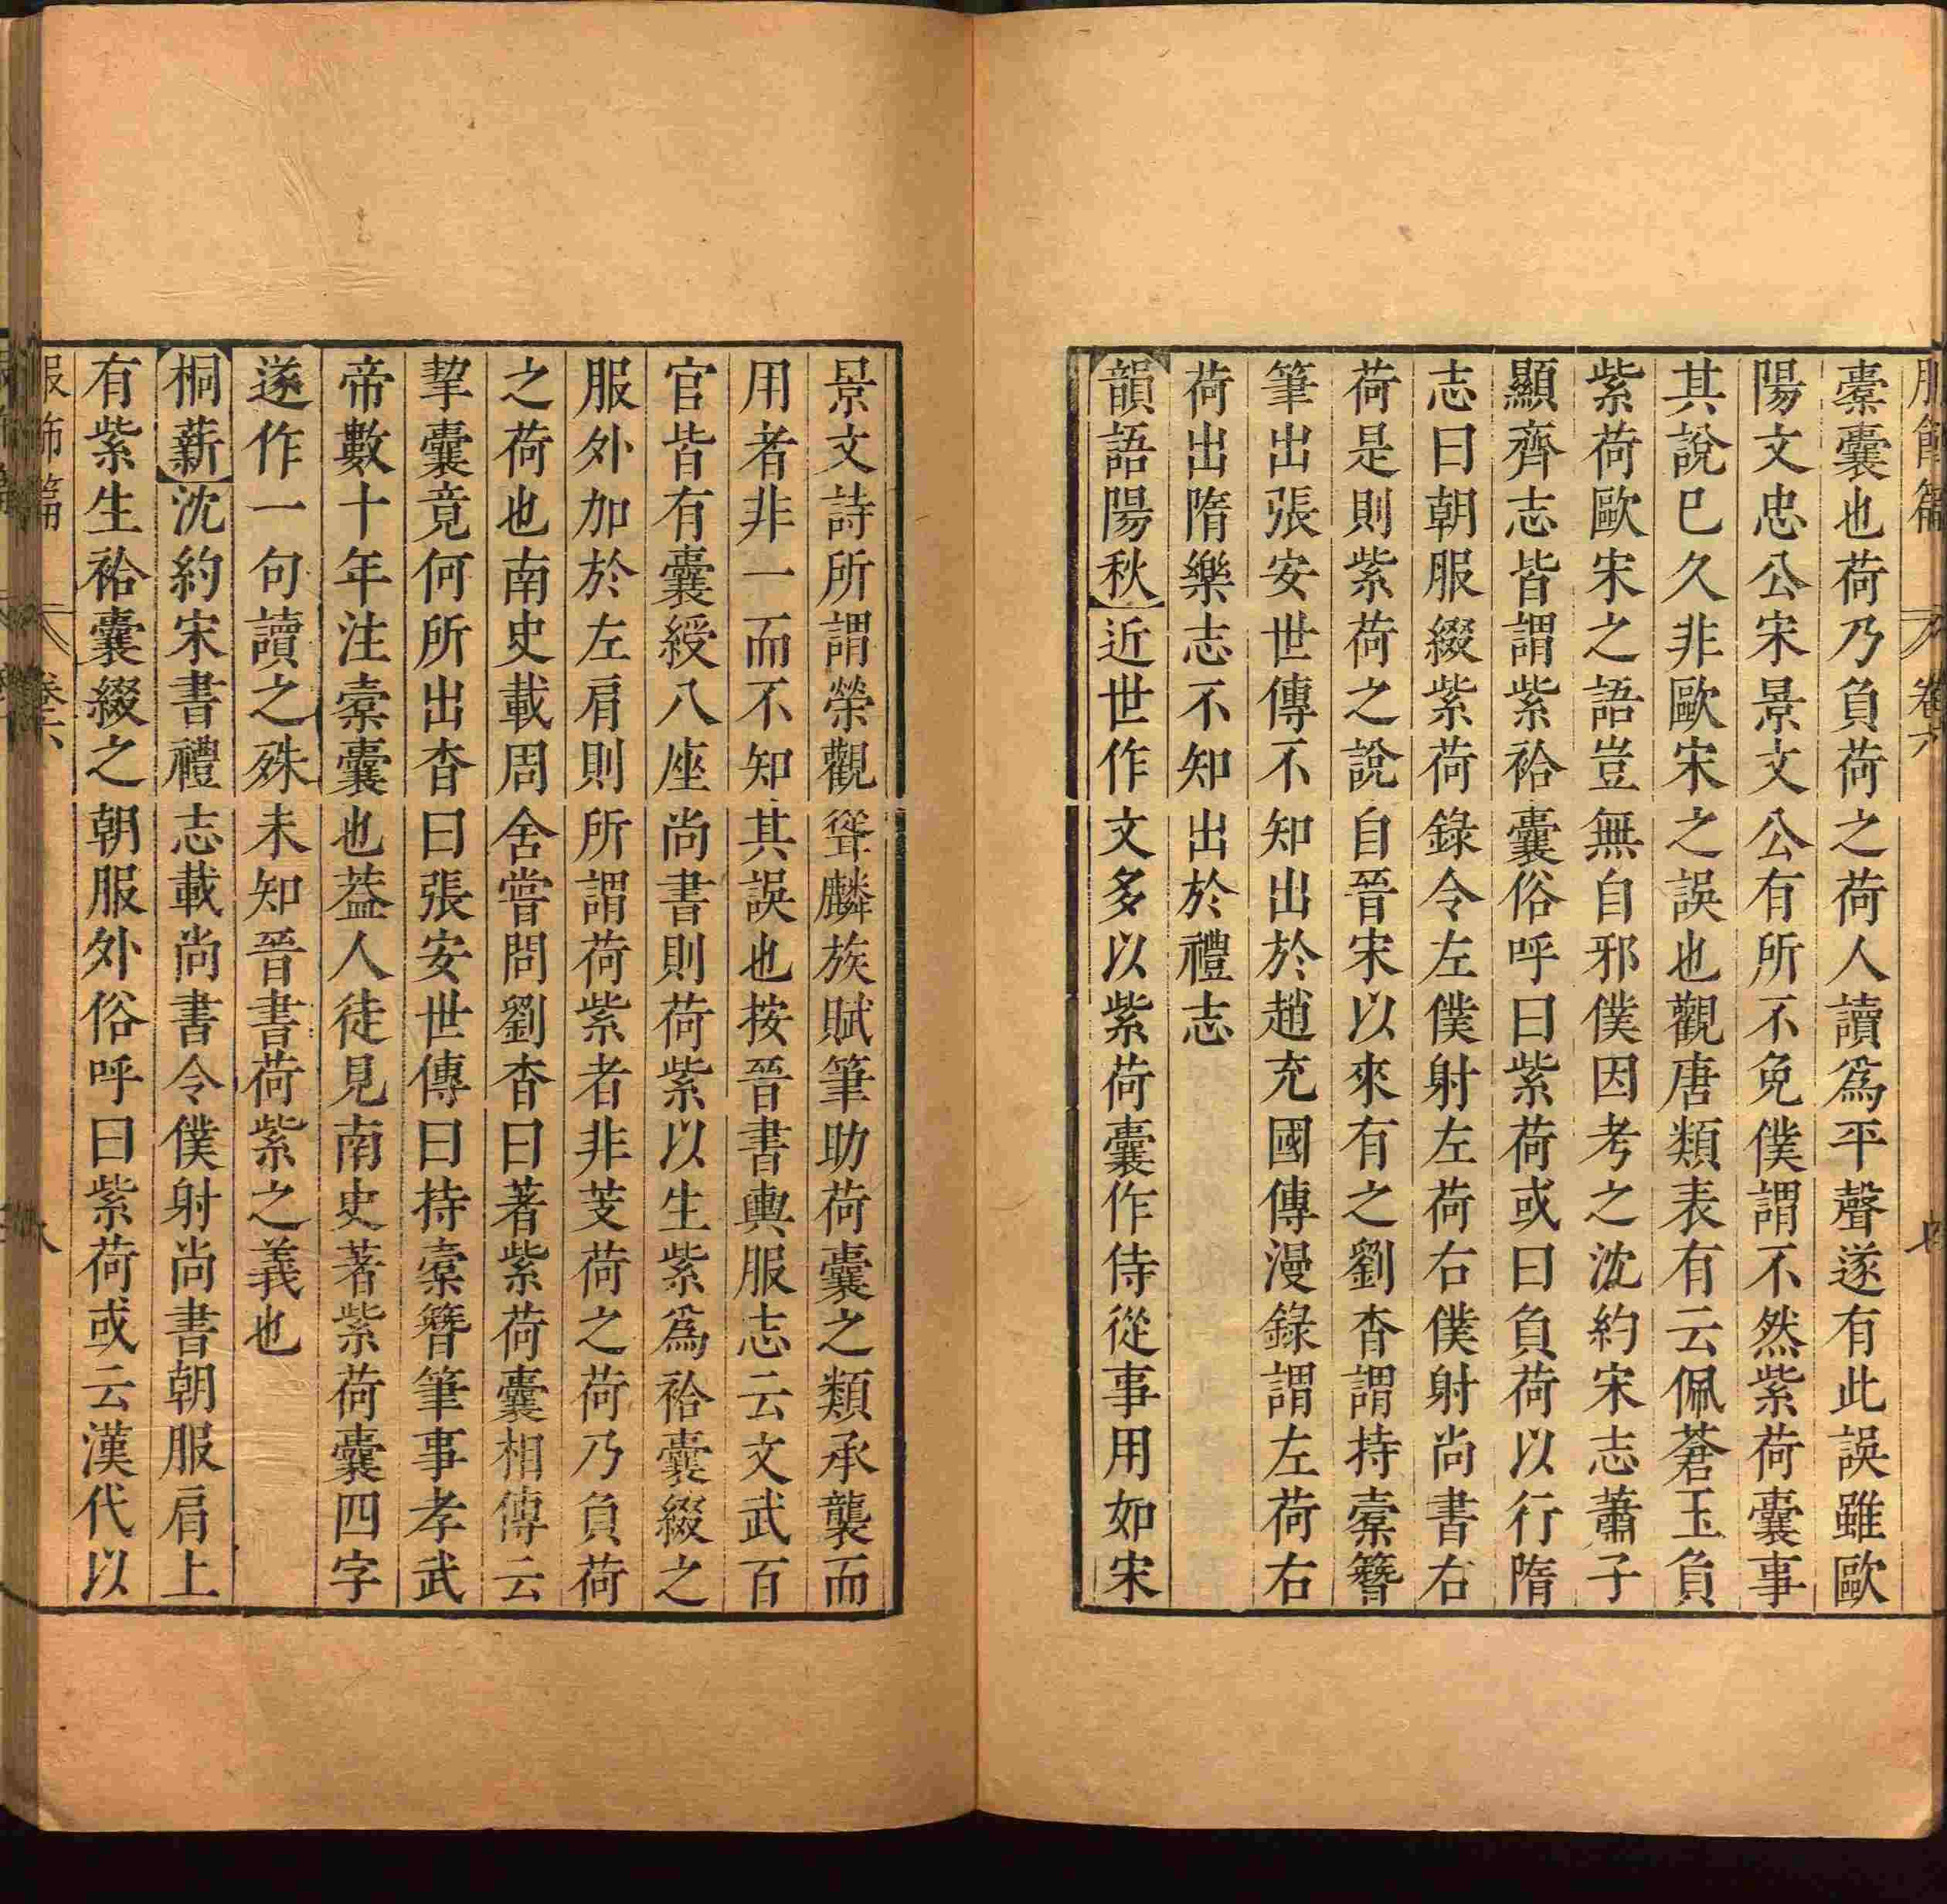 服飾篇 卷六 七
橐囊也荷乃負荷之荷人讀爲平聲遂有此誤雖歐
陽文忠公宋景文公有所不免僕謂不然紫荷囊事
其說巳久非歐宋之誤也觀唐類表有云佩蒼玉負
紫荷歐宋之語豈無自邪僕因考之沈約宋志蕭子
顯齊志皆謂紫袷囊俗呼曰紫荷或曰負荷以行隋
志曰朝服綴紫荷錄令左僕射左荷右僕射尚書右
荷是則紫荷之說自晉宋以來有之劉杳謂持橐簪
筆出張安世傳不知出於趙充國傳漫錄謂左荷右
荷出隋樂志不知出於禮志
韻語陽秋近世作文多以紫荷囊作侍從事用如宋
景文詩所謂榮觀聳麟族賦筆助荷囊之類承襲而
用者非一而不知其誤也按晉書輿服志云文武百
官皆有囊綬八座尚書則荷紫以生紫爲袷囊綴之
服外加於左肩則所謂荷紫者非芰荷之荷乃負荷
之荷也南史載周舍嘗問劉杳曰著紫荷囊相傳云
挈囊竟何所出杳曰張安世傳曰持橐簪筆事孝武
帝數十年注橐囊也葢人徒見南史著紫荷囊四字
遂作一句讀之殊未知晉書荷紫之義也
桐薪沈約宋書禮志載尚書令僕射尚書朝服肩上
有紫生袷囊綴之朝服外俗呼曰紫荷或云漢代以
服飾篇 卷六 八